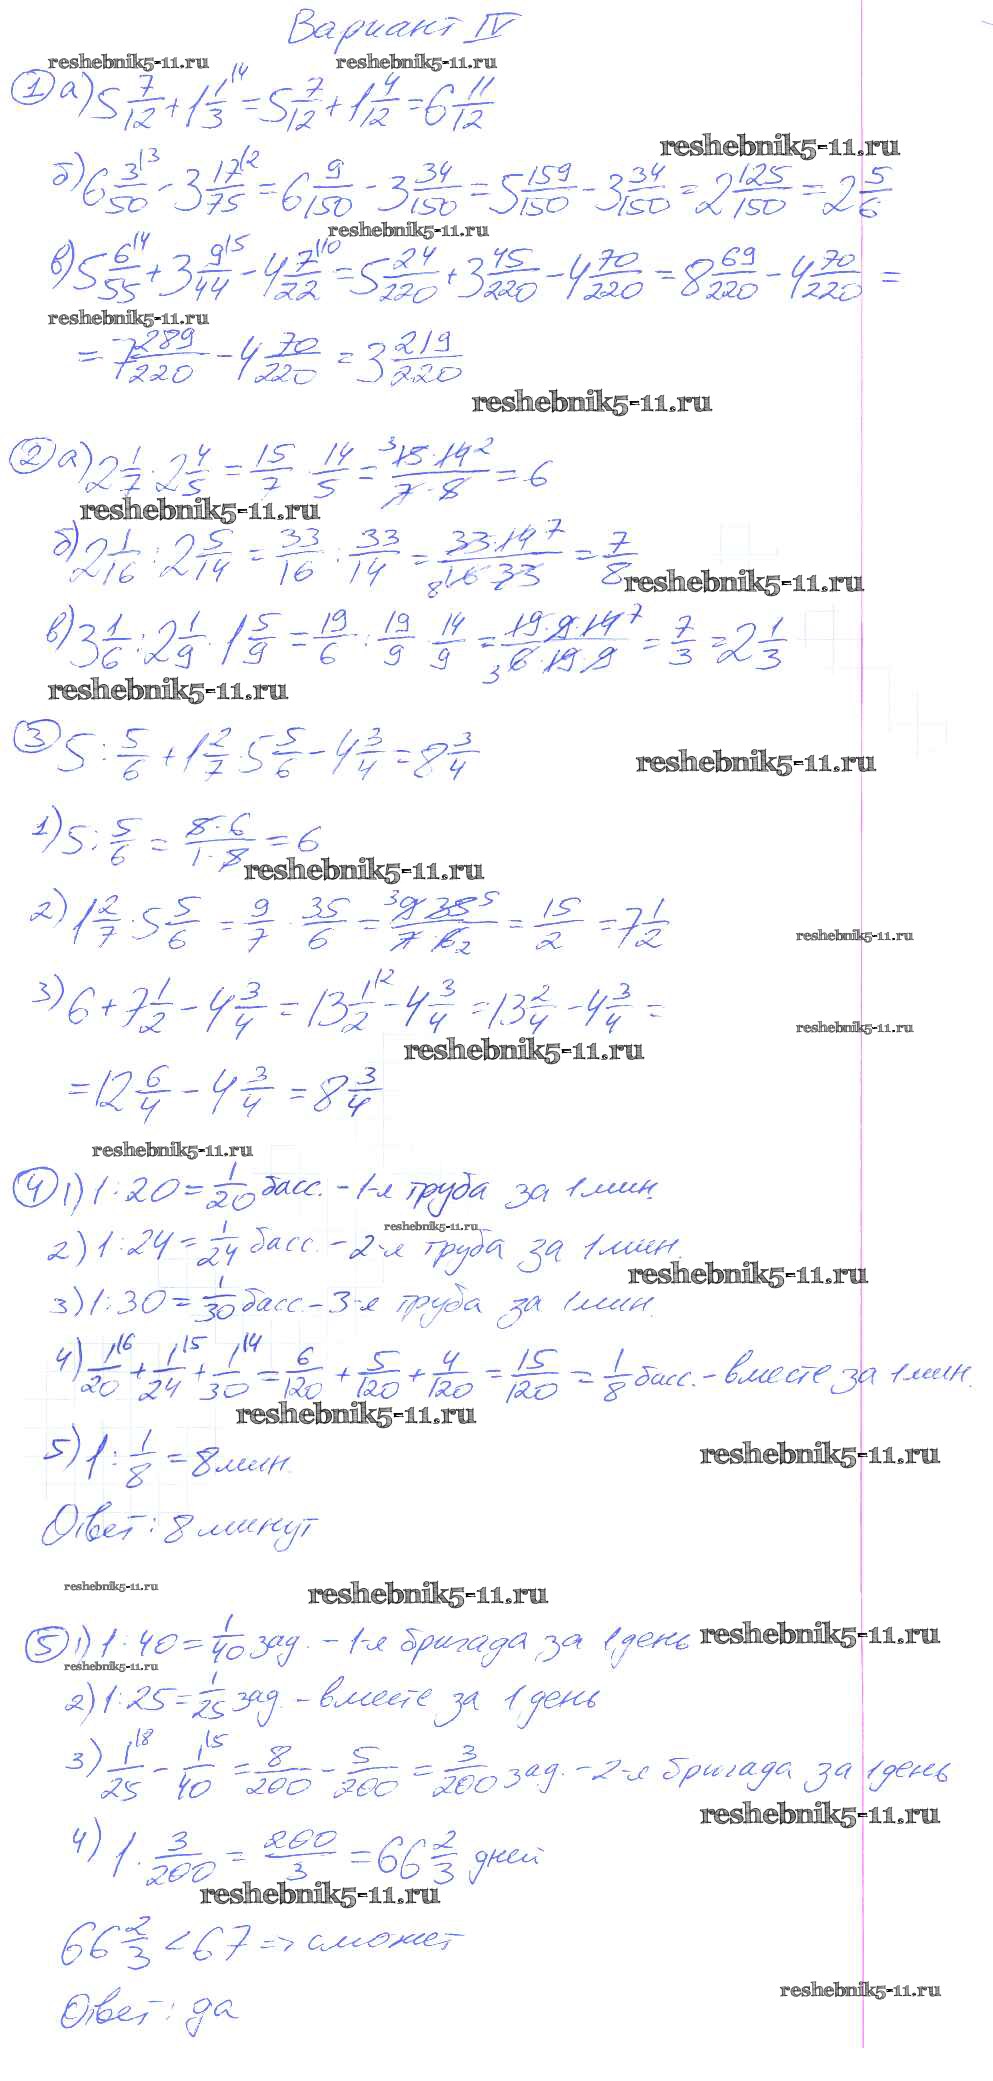 Вариант IV
reshebnik5-11.ru reshebnik5-11.ru
① а) 5 7/12 + 1 1/3 ^{\4} = 5 7/12 + 1 4/12 = 6 11/12
reshebnik5-11.ru
б) 6 3/50 ^{\3} - 3 17/75 ^{\2} = 6 9/150 - 3 34/150 = 5 159/150 - 3 34/150 = 2 125/150 = 2 5/6
reshebnik5-11.ru
в) 5 6/55 ^{\4} + 3 9/44 ^{\5} - 4 7/22 ^{\10} = 5 24/220 + 3 45/220 - 4 70/220 = 8 69/220 - 4 70/220 =
reshebnik5-11.ru
= 7 289/220 - 4 70/220 = 3 219/220
reshebnik5-11.ru
② а) 2 1/7 · 2 4/5 = 15/7 · 14/5 = ³15·14²/7·5 = 6
reshebnik5-11.ru
б) 2 1/16 : 2 5/14 = 33/16 : 33/14 = 33·14⁷/₈16·33 = 7/8
reshebnik5-11.ru
в) 3 1/6 : 2 1/9 · 1 5/9 = 19/6 : 19/9 · 14/9 = 19·9·14⁷/₃6·19·9 = 7/3 = 2 1/3
reshebnik5-11.ru
③ 5 : 5/6 + 1 2/7 · 5 5/6 - 4 3/4 = 8 3/4
reshebnik5-11.ru
1) 5 : 5/6 = 5·6/1·5 = 6
reshebnik5-11.ru
2) 1 2/7 · 5 5/6 = 9/7 · 35/6 = ³9·35⁵/7·6₂ = 15/2 = 7 1/2
reshebnik5-11.ru
3) 6 + 7 1/2 - 4 3/4 = 13 1/2 ^{\2} - 4 3/4 = 13 2/4 - 4 3/4 =
reshebnik5-11.ru
reshebnik5-11.ru
= 12 6/4 - 4 3/4 = 8 3/4
reshebnik5-11.ru
④ 1) 1 : 20 = 1/20 басс. - 1-я труба за 1 мин.
reshebnik5-11.ru
2) 1 : 24 = 1/24 басс. - 2-я труба за 1 мин.
reshebnik5-11.ru
3) 1 : 30 = 1/30 басс - 3-я труба за 1 мин.
4) 1/20 ^{\6} + 1/24 ^{\5} + 1/30 ^{\4} = 6/120 + 5/120 + 4/120 = 15/120 = 1/8 басс. - вместе за 1 мин.
reshebnik5-11.ru
reshebnik5-11.ru
5) 1 : 1/8 = 8 мин.
Ответ : 8 минут
reshebnik5-11.ru reshebnik5-11.ru
⑤ 1) 1 : 40 = 1/40 зад. - 1-я бригада за 1 день
reshebnik5-11.ru
reshebnik5-11.ru
2) 1 : 25 = 1/25 зад. - вместе за 1 день
3) 1/25 ^{\8} - 1/40 ^{\5} = 8/200 - 5/200 = 3/200 зад. - 2-я бригада за 1 день
reshebnik5-11.ru
4) 1 : 3/200 = 200/3 = 66 2/3 дней
reshebnik5-11.ru
66 2/3 < 67 => сможет
reshebnik5-11.ru
Ответ : да